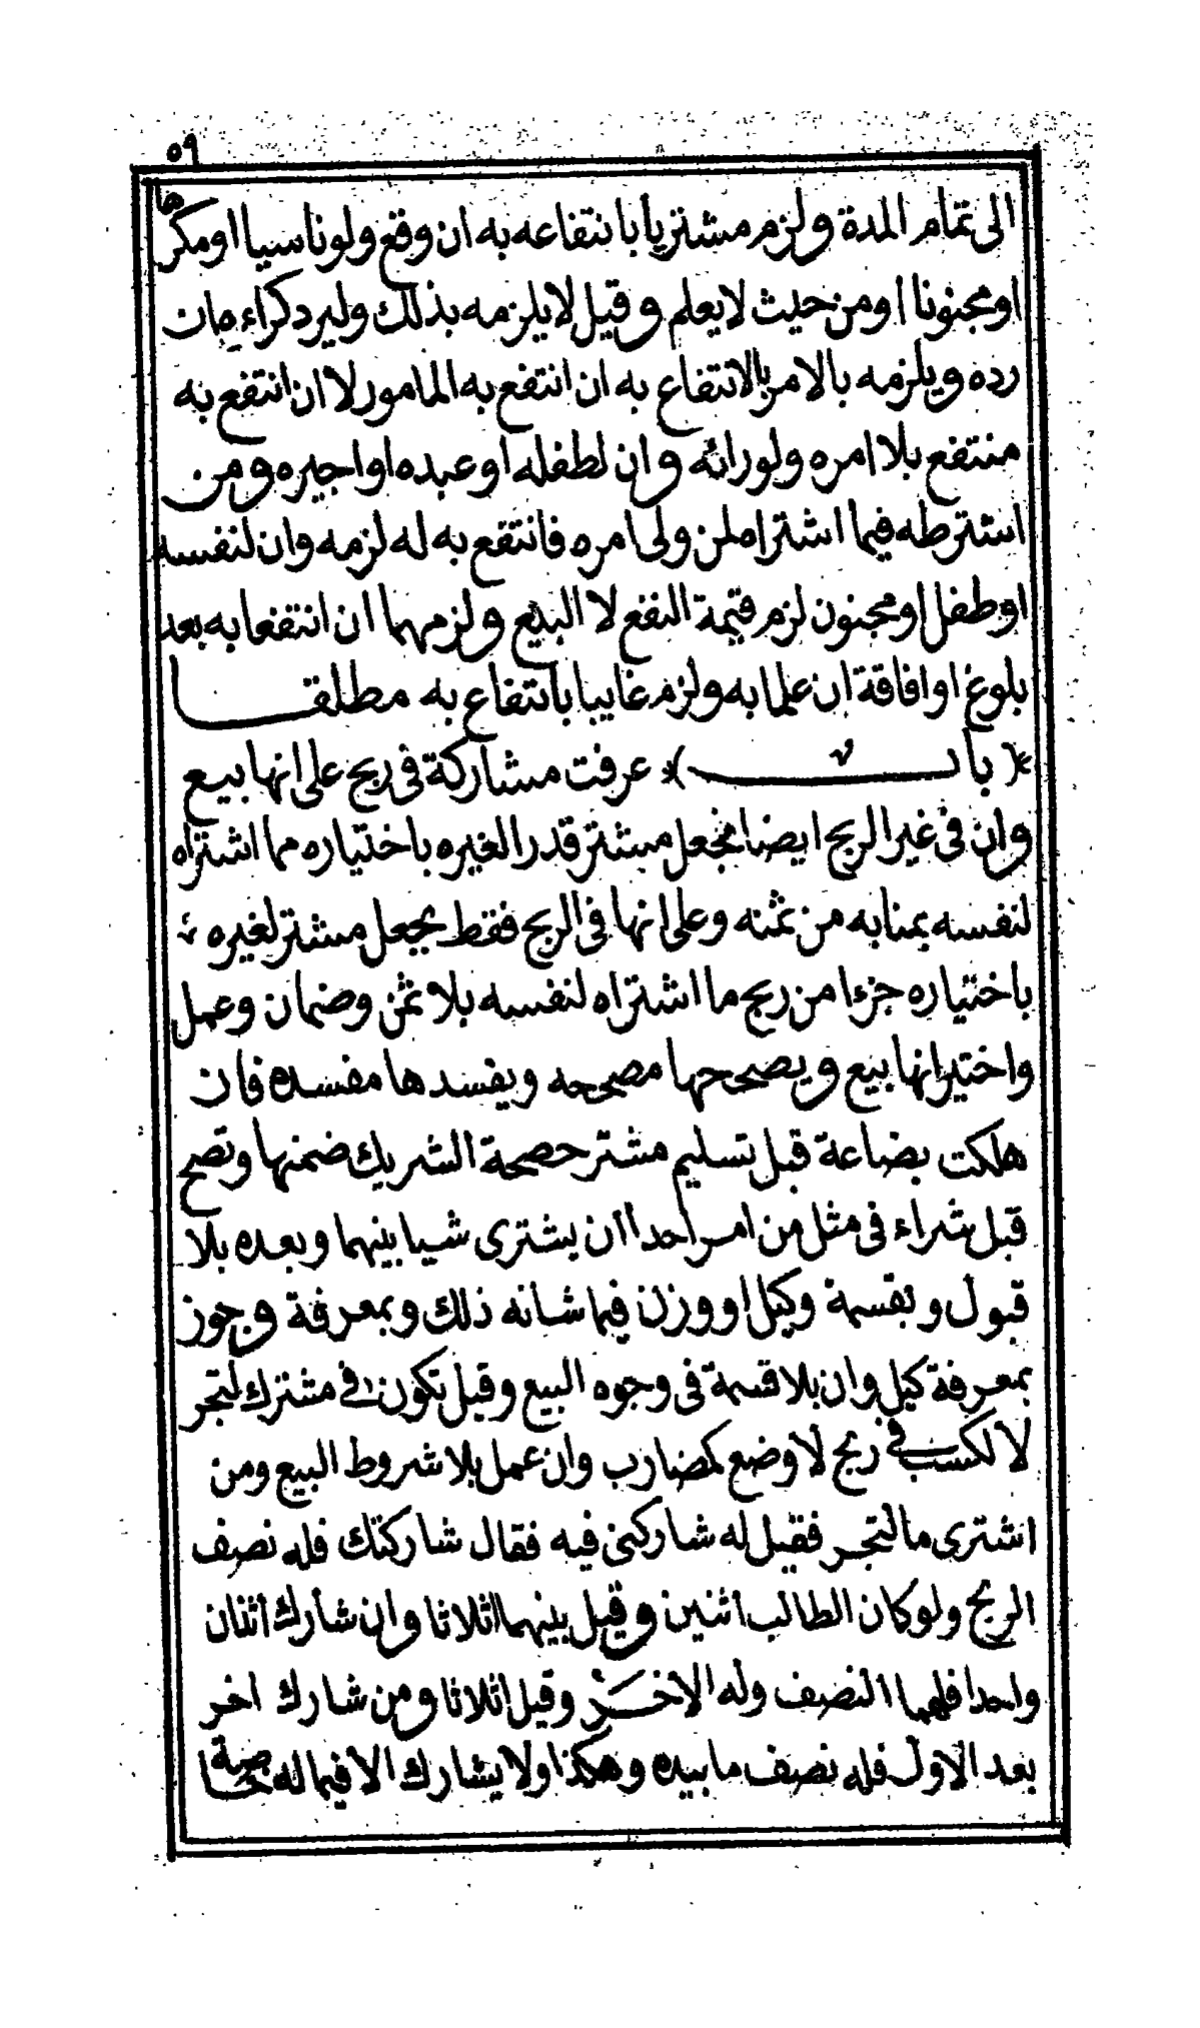 ٥٩
الى تمام المدة ولزم مشتريا بانتفاعه به ان وقع ولوناسيا اومكرها
اومجنونا اومن حيث لايعلم وقيل لايلزمه بذلك وليرد كراءه ان
رده ويلزمه بالامر بالانتفاع به ان انتفع به المامور لا ان انتفع به
منتفع بلا امره ولوراٸه وان لطفله اوعبده اواجيره ومن
اشترطه فيما اشتراه لمن ولى امره فانتفع به له لزمه وان لنفسه
اوطفل اومجنون لزم قيمة النفع لا البيع ولزمهما ان انتفعا به بعد
بلوغ اوافاقة ان علما به ولزم غايبا بانتفاع به مطلقـا
﴿ باب ﴾ عرفت مشاركة فى ربح على انها بيع
وان فى غير الربح ايضا فجعل مشتر قدرا لغيره باختياره مما اشتراه
لنفسه بمنابه من ثمنه وعلى انها فى الربح فقط يجعل مشتر لغيره
باختياره جزءا من ربح ما اشتراه لنفسه بلا ثمن وضمان وعمل
واختير انها بيع ويصححها مصححه ويفسدها مفسده فان
هلكت بضاعة قبل تسليم مشتر حصة الشريك ضمنها وتصح
قبل شراء فى مثل من امر احدا ان يشترى شيا بينهما وبعده بلا
قبول وبقسمة وكيل او وزن فيما شانه ذلك وبمعرفة وجوز
بمعرفة كيل وان بلا قسمة فى وجوه البيع وقيل تكون فى مشترك لتجر
لا لكسب فى ربح لا وضع كمضارب وان عمل بلا شروط البيع ومن
اشترى ما لتجر فقيل له شاركنى فيه فقال شاركتك فله نصف
الربح ولوكان الطالب اثنين وقيل بينهما اثلاثا وان شارك اثنان
واحدا فلهما النصف وله الاخر وقيل اثلاثا ومن شارك اخر
بعد الاول فله نصف ما بيده وهكذا ولا يشارك الا فيما له خاصة